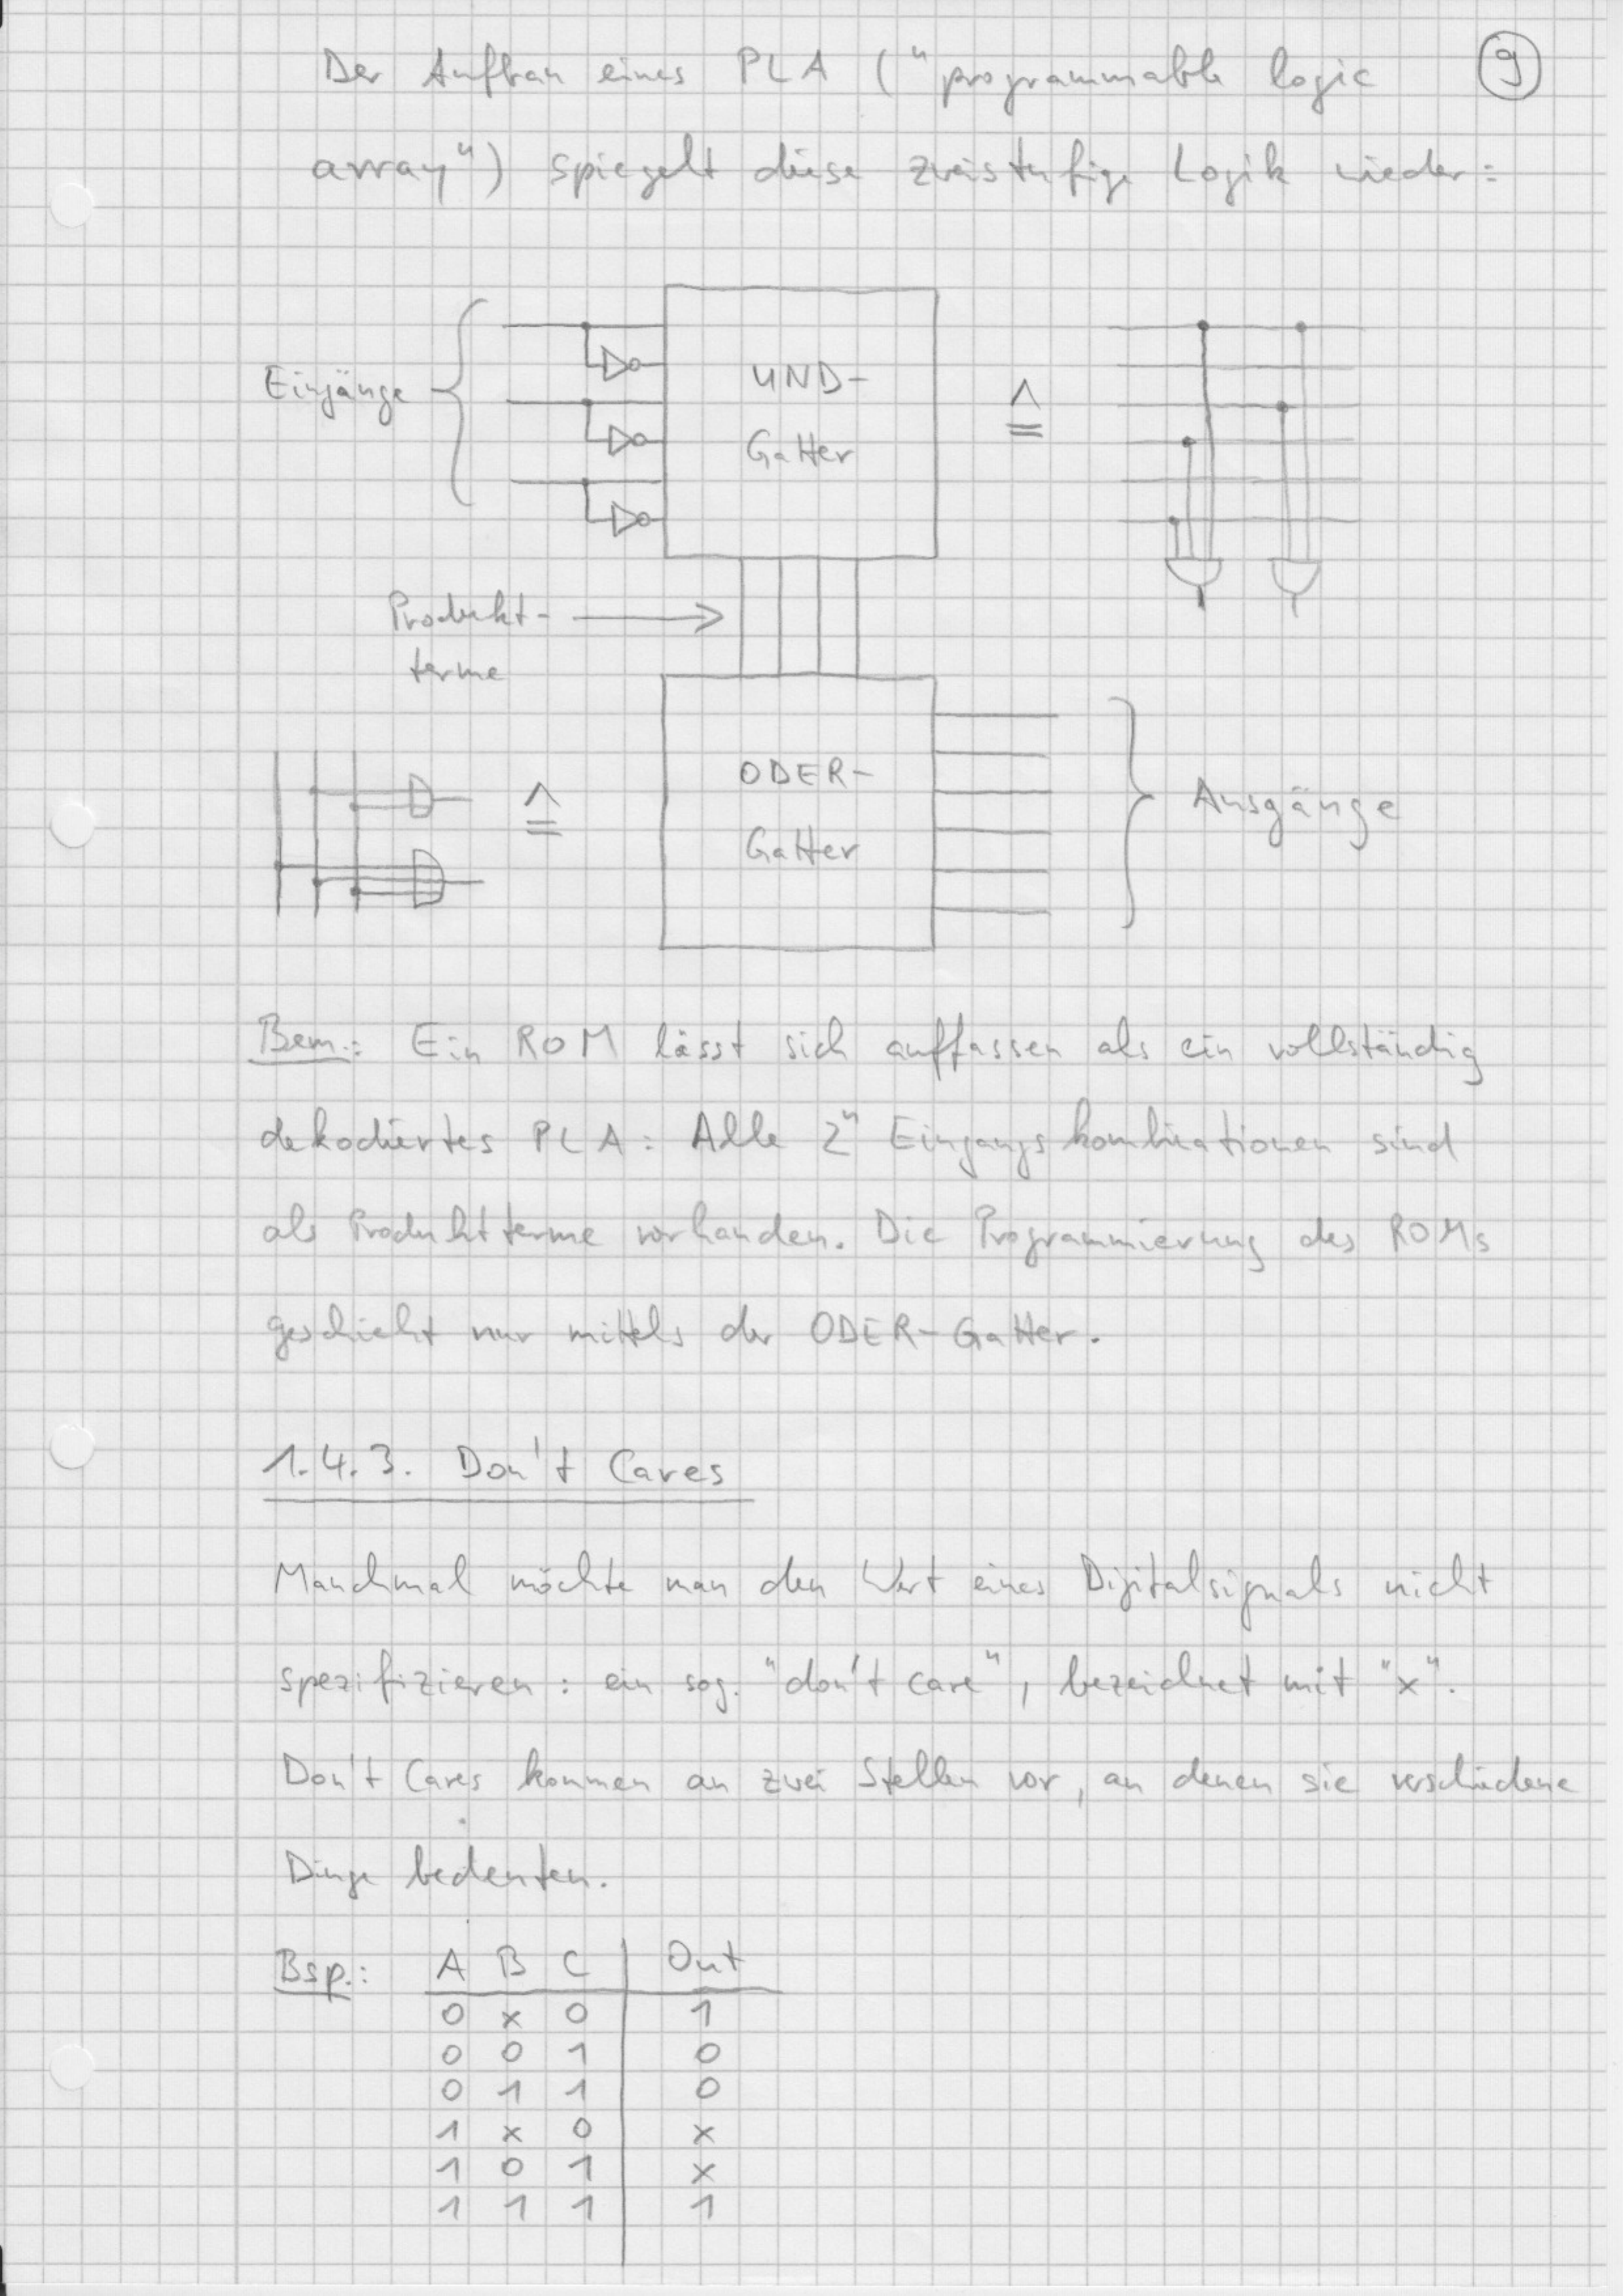 Der Aufbau eines PLA ("programmable logic
9
array") spiegelt diese zweistufige Logik wieder:
Eingänge
UND-
Gatter
≙
Produkt-
terme
≙
ODER-
Gatter
Ausgänge
Bem.: Ein ROM lässt sich auffassen als ein vollständig
dekodiertes PLA: Alle 2ⁿ Eingangskombinationen sind
als Produktterme vorhanden. Die Programmierung des ROMs
geschieht nur mittels der ODER-Gatter.
1.4.3. Don't Cares
Manchmal möchte man den Wert eines Digitalsignals nicht
spezifizieren: ein sog. "don't care", bezeichnet mit "x".
Don't Cares kommen an zwei Stellen vor, an denen sie verschiedene
Dinge bedeuten.
Bsp.: A B C Out
0 x 0 1
0 0 1 0
0 1 1 0
1 x 0 x
1 0 1 x
1 1 1 1